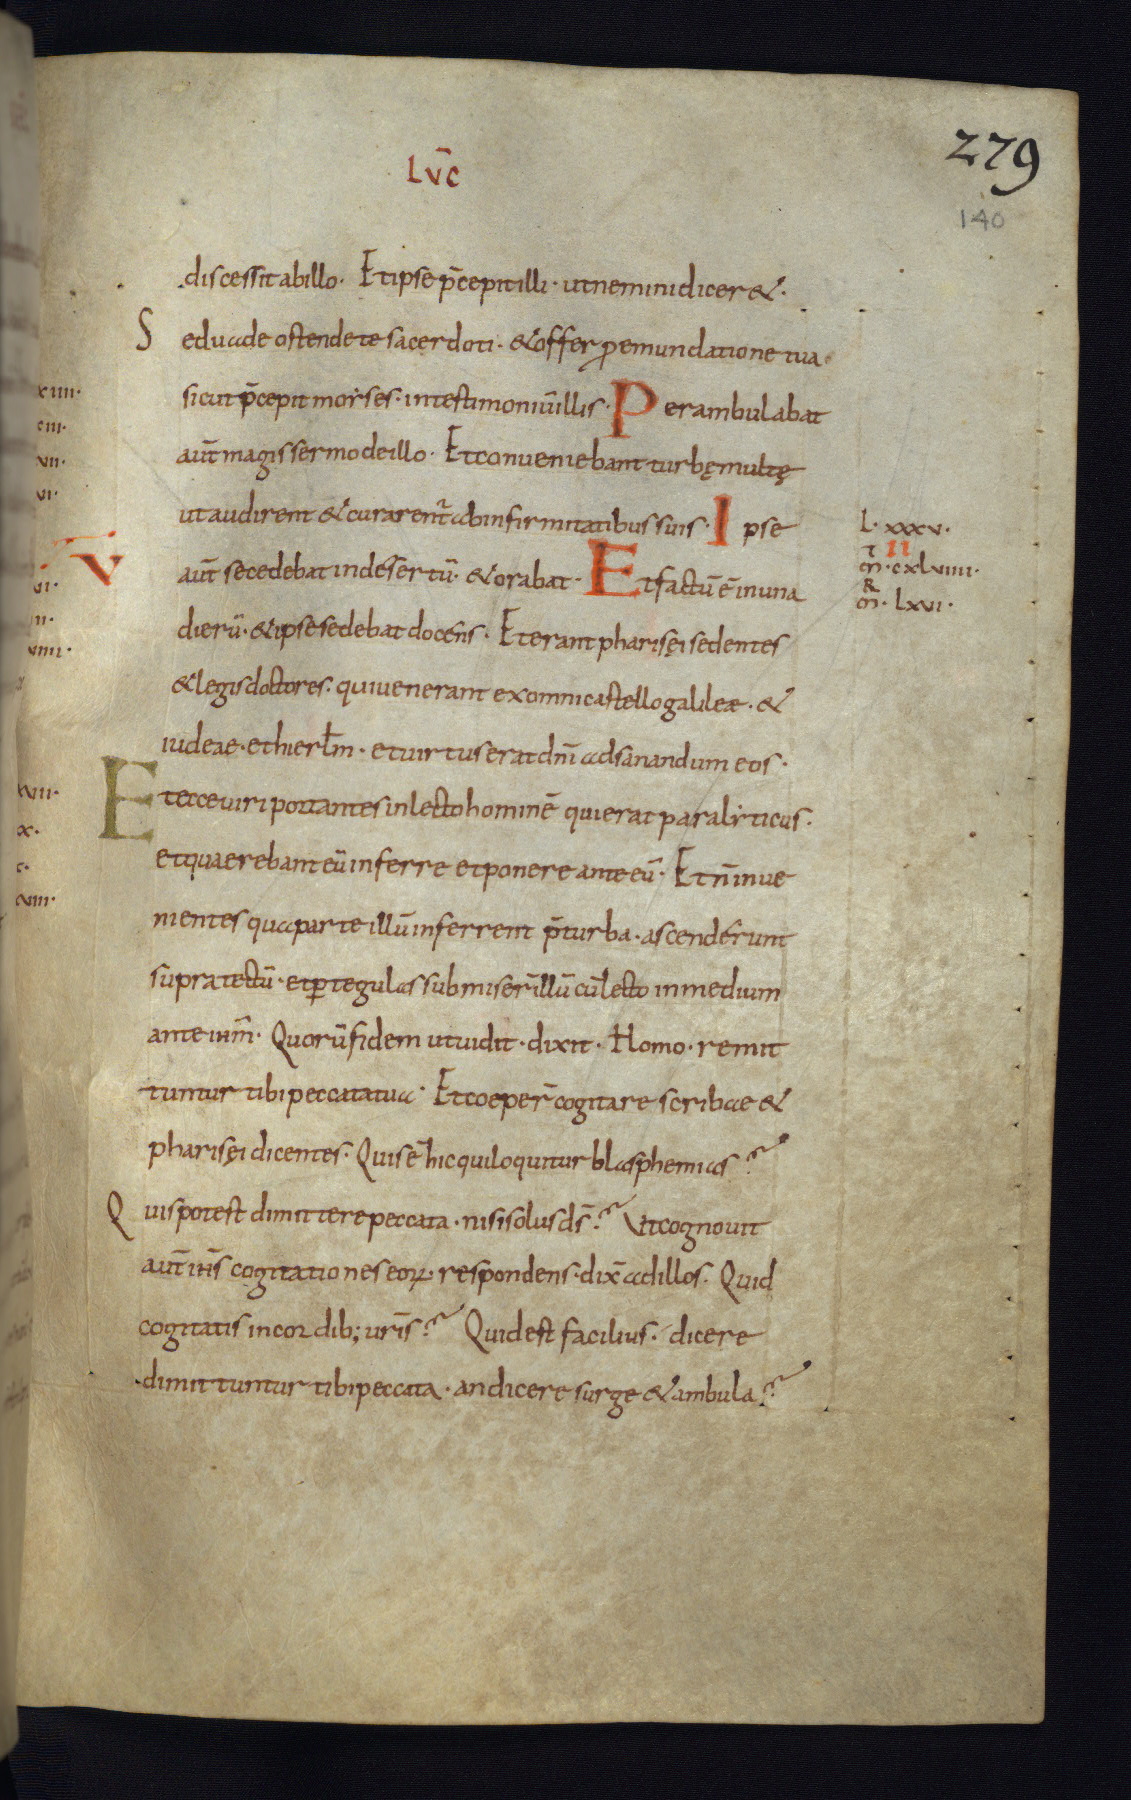 LVC̄
279
140
discessit ab illo. Et ipse p̄cepit illi. ut nemini dicer&.
Sed uade ostende te sacerdoti. & offer ꝓ emundatione tua
sicut p̄cepit moẏses. in testimoniū illis. Perambulabat
aut̄ magis sermo de illo. Et conueniebant turbę multę
ut audirent & curarent̄ ab infirmitatibus suis. Ipse
aut̄ secedebat in desertū. & orabat. Et factū ē in una
dierū. & ipse sedebat docens. Et erant pharisęi sedentes
& legis doctores. qui uenerant ex omni castello galileæ. &
iudeae. et hierl̄m. et uirtus erat dn̄i ad sanandum eos.
Et ecce uiri portantes in lecto hominē qui erat paralẏticus.
et quaerebant eū inferre et ponere ante eū. Et n̄ inue
nientes qua parte illū inferrent p̄ turba. ascenderunt
supra tectū. et ꝑ tegulas submiser̄ illū cū lecto in medium
ante ihm̄. Quorū fidem ut uidit. dixit. Homo. remit
tuntur tibi peccata tua. Et coeper̄ cogitare scribae &
pharisęi dicentes. Quis ē hic qui loquitur blasphemias?
Quis potest dimittere peccata. nisi solus ds̄? Ut cognouit
aut̄ ih̄s cogitationes eoꝝ. respondens. dix̄ ad illos. Quid
cogitatis in cordib; uris̄? Quid est facilius. dicere
dimittuntur tibi peccata. an dicere surge & ambula?
V
L. xxxv.
II
m̄. cxlviiii.
R
m̄. lxvi.